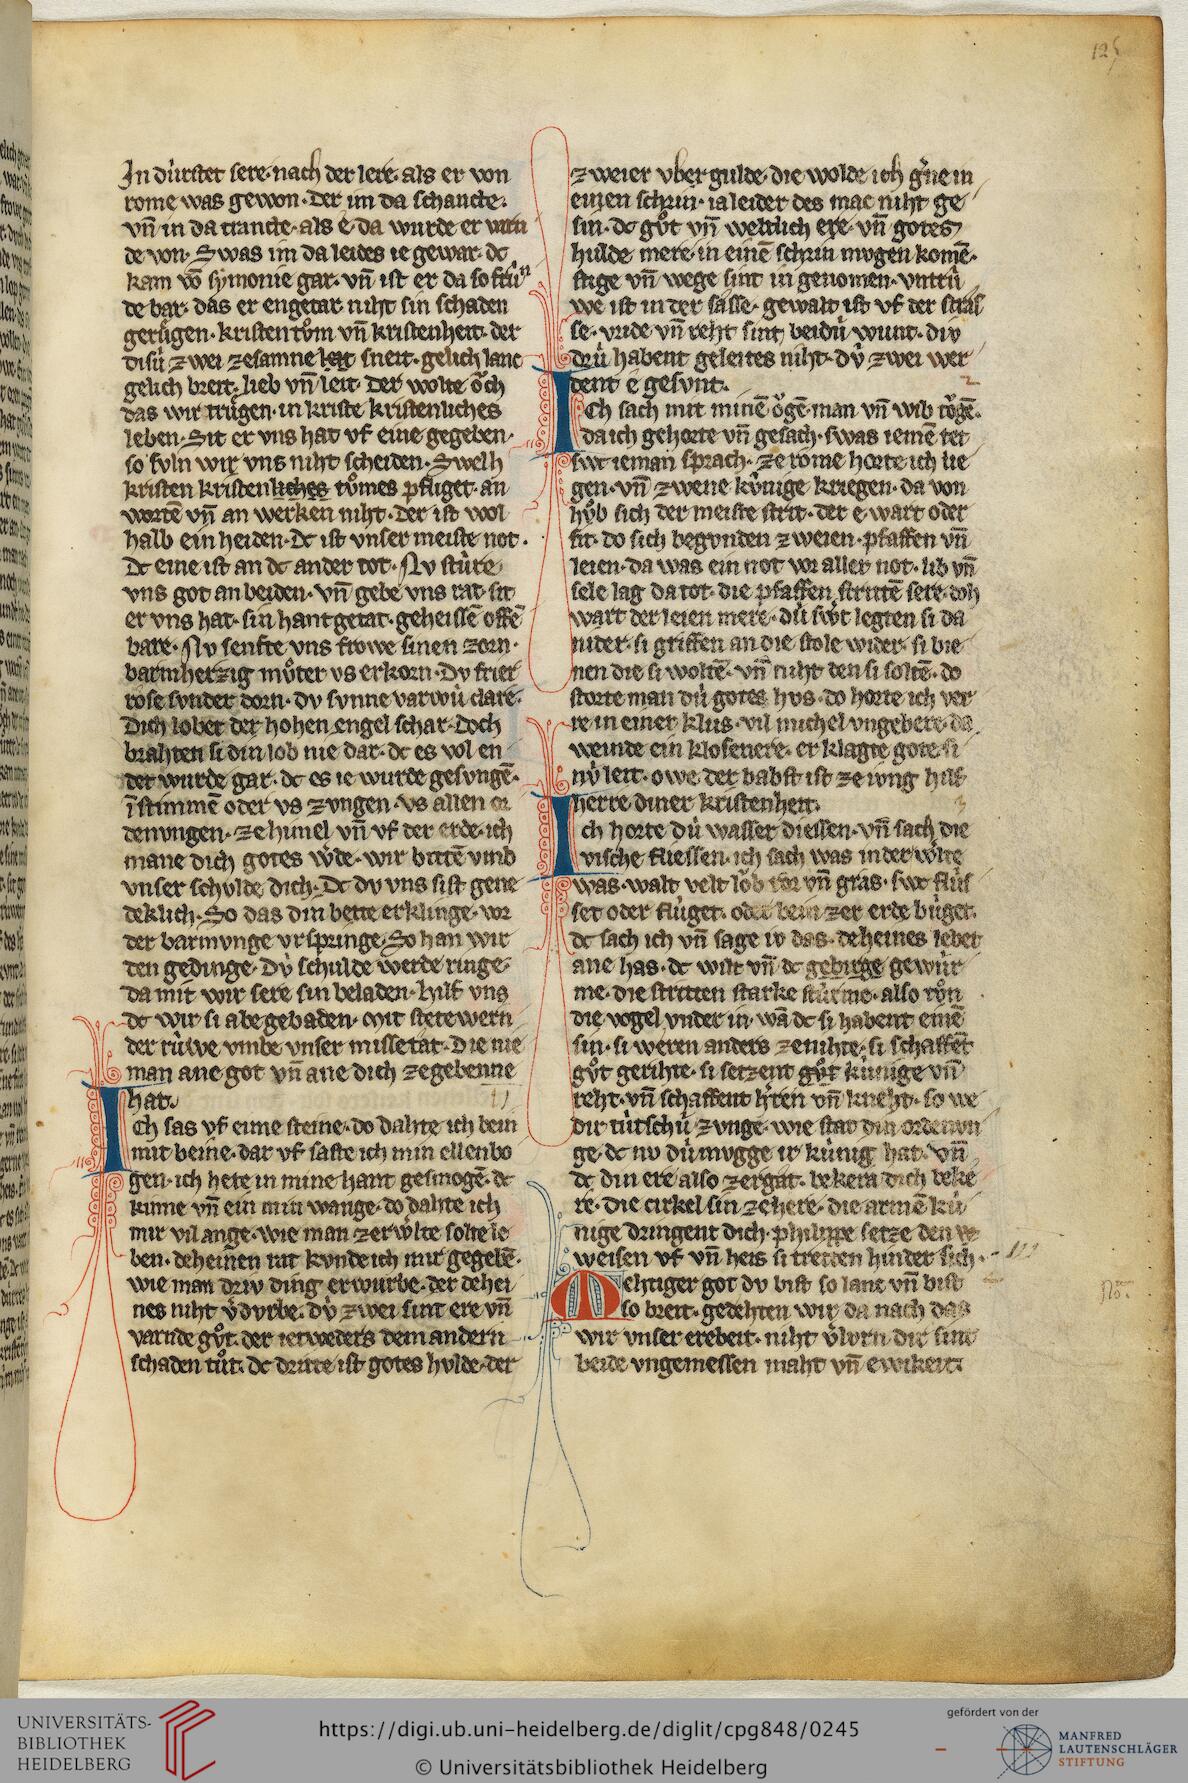 125
In dúrstet sere· nach der lere· als er von
rome was gewon· Der im da schancte·
vn̄ in da trancte· als e· da wurde er varn
de von· Swas im da leides ie gewar· dc
kam vō symonie gar· vn̄ ist er da so frúⁿ
de bar· das er engetar niht sin schaden
gerůgen· kristentům vn̄ kristenheit· der
disú zwei zesamne sneit· gelich lanc
gelich breit· lieb vn̄ leit· Der wolte ǒch
das wir trůgen· in kriste kristenliches
leben· Sit er vns hat vf eine gegeben·
so svln wir vns niht scheiden· Swelh
kristen kristenliches tůmes pfliget· an
wortē vn̄ an werken niht· Der ist wol
halb ein heiden· Dc ist vnser meiste not·
Dc eine ist an dc ander tot· Nv stúre
vns got an beiden· vn̄ gebe vns rat· sit
er vns hat· sin hantgetat· geheissē offē
bare· Nv senfte vns frowe sinen zorn·
barmherzig můter vs erkorn· Dv frier
rose svnder dorn· dv svnne varwú clare·
Dich lobet der hohen engel schar· Doch
brahten si din lob nie dar· dc es vol en
det wurde gar· dc es ie wurde gesvngē·
ī stimmē oder vs zvngen· vs allen or
denvngen· ze himel vn̄ vf der erde· ich
mane dich gotes w̍de· wir bittē vmb
vnser schvlde dich· Dc dv vns sist gene
deklich· So das din bette erklinge· vor
der barmvnge vrspringe· So han wir
den gedinge· Dú schulde werde ringe·
da mit wir sere sin beladen· hilf vns
dc wir si abegebaden· Mit stetewern
der rúwe vmbe vnser missetat· Die nie
man ane got vn̄ ane dich zegebenne
hat·
Ich sas vf eime steine· do dahte ich bein
mit beine· dar vf saste ich min ellenbo
gen· ich hete in mine hant gesmogē· dc
kinne vn̄ ein min wange· do dahte ich
mir vil ange· wie man zer w̍lte solte le
ben· deheinen rat kvnde ich mir gegebē·
wie man driv ding erwurbe· der dehei
nes niht v̍dvrbe· dv́ zwei sint ere vn̄
varnde gůt· der ietweders dem andern
schaden tůt· dc dritte ist gotes hvlde· der
zweier vbergulde· die wolde ich g̍ne in
einen schrin· ia leider des mac niht ge
sin· dc gůt vn̄ weltlich ere· vn̄ gotes
hulde mere· in einē schrin mvgen komē·
stige vn̄ wege sint in genomen· vntrú
we ist in der sasse· gewalt ist vf der stras
se· vride vn̄ reht sint beidú wunt· div
drú habent geleites niht· dv́ zwei wer
dent e gesvnt·
2
Ich sach mit minē ǒgē· man vn̄ wib tǒgē·
da ich gehorte vn̄ gesach· swas iemē tet
swc ieman sprach· ze rome horte ich lie
gen· vn̄ zwene kúnige kriegen· da von
hůb sich der meiste strit· der e wart oder
sit· do sich begvnden zweien· pfaffen vn̄
leien· da was ein not vor aller not· lib vn̄
sele lag da tot· die pfaffen strittē sere· doh
wart der leien mere· dú sw̍t legten si da
nider· si griffen an die stole wider· si bie
nen die si woltē· vn̄ niht den si soltē· do
storte man dú gotes hvs· do horte ich ver
re in einer klus· vil michel vngebere· da
weinde ein klosenere· er klagte gote si
nv́ leit· owe der babst ist ze ivng hilf
herre diner kristenheit·
3
Ich horte dú wasser diessen· vn̄ sach die
vische fliessen· ich sach was in der w̍lte
was· walt velt lǒb ror vn̄ gras· swc flús
set oder flúget· oder bein zer erde búget·
dc sach ich vn̄ sage iv das· deheines lebet
ane has· dc wilt vn̄ dc gebirge gewúr
me· die stritten starke stúrme· also tůn
die vogel vnder in· wā dc si habent einē
sin· si weren anders ze nihte· si schaffēt
gůt gerihte· si setzent gůt kúnige vn̄
reht· vn̄ schaffent h̍ren vn̄ kneht· so we
dir tútschú zvnge· wie stat din ordenvn
ge· dc nv dú mvgge ir kúnig hat· vn̄
dc din ere also zergat· bekera dich beke
re· die cirkel sin ze here· die armē kú
nige dringent dich· philippe setze den
weisen vf vn̄ heis si tretten hinder sich·
Mehtiger got dv bist so lanc vn̄ bist
so breit· gedehten wir da nach das
wir vnser erebeit· niht v̍lurn dir sint
beide vngemessen maht vn̄ ewikeit·
UNIVERSITÄTS-
BIBLIOTHEK
HEIDELBERG
https://digi.ub.uni-heidelberg.de/diglit/cpg848/0245
© Universitätsbibliothek Heidelberg
gefördert von der
MANFRED
LAUTENSCHLÄGER
STIFTUNG